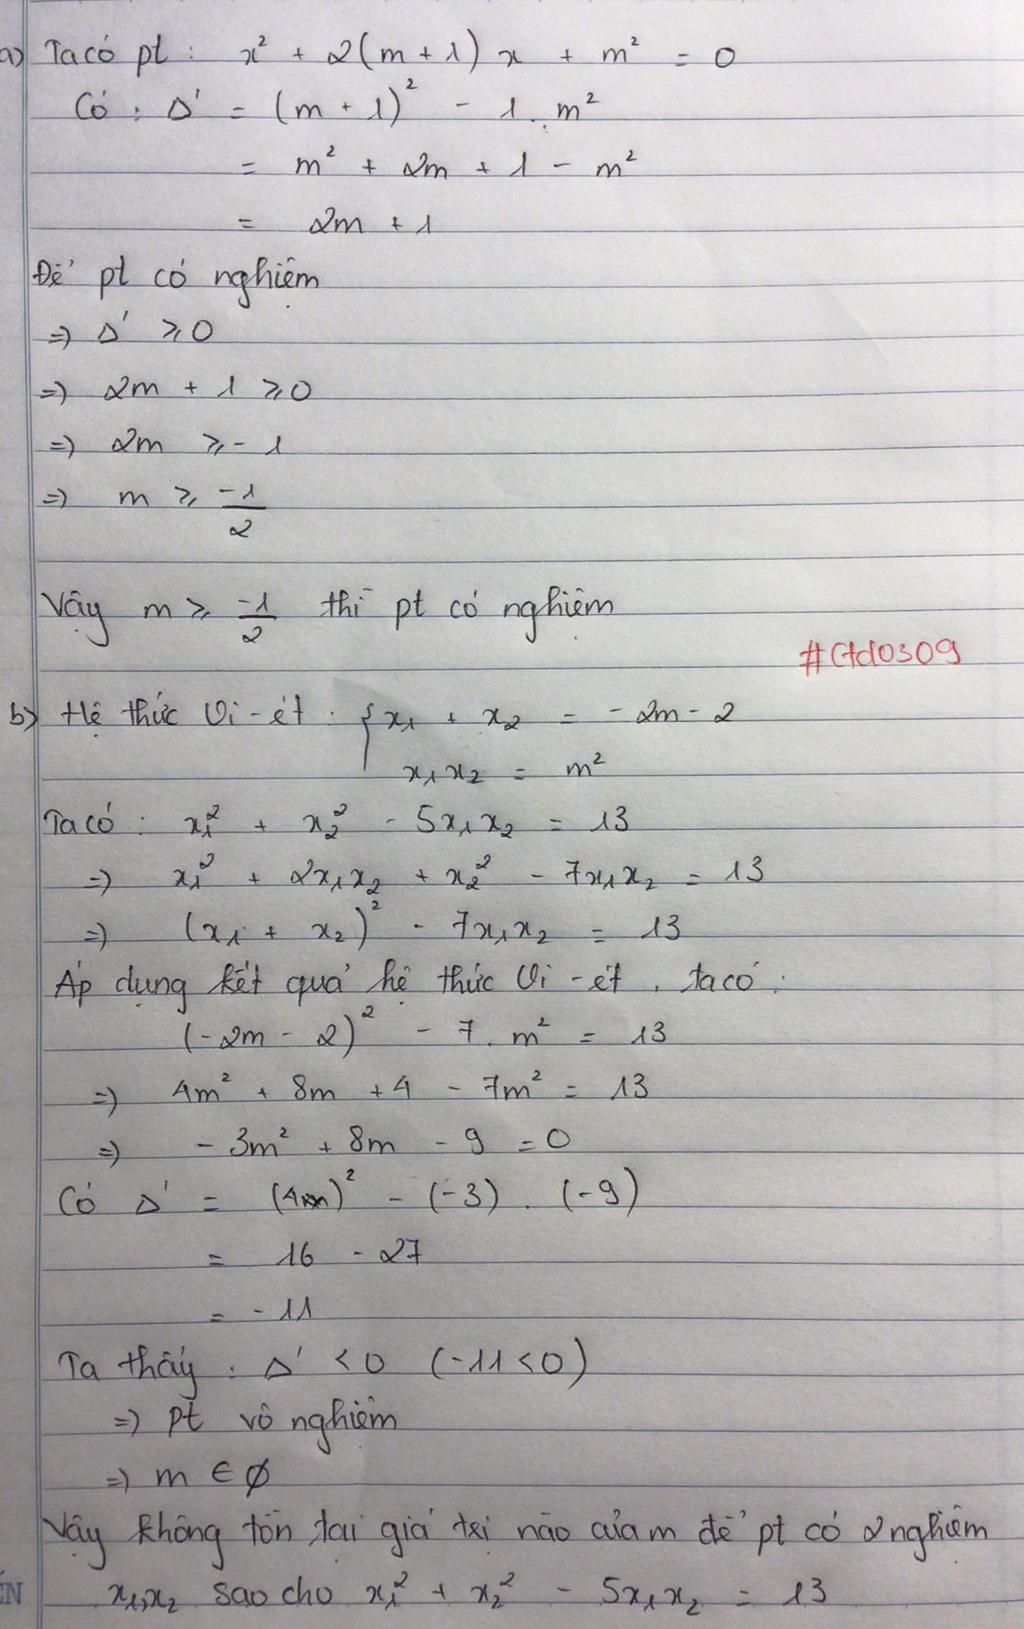 a) Ta có pt : x² + 2(m + 1) x + m² = 0
Có : Δ' = (m + 1)² - 1 . m²
= m² + 2m + 1 - m²
= 2m + 1
Để pt có nghiệm
=> Δ' ≥ 0
=> 2m + 1 ≥ 0
=> 2m ≥ - 1
=> m ≥ -1/2
Vậy m ≥ -1/2 thì pt có nghiệm
#Ctd0309
b) Hệ thức Vi-ét : { x₁ + x₂ = - 2m - 2
x₁x₂ = m²
Ta có : x₁² + x₂² - 5x₁x₂ = 13
=> x₁² + 2x₁x₂ + x₂² - 7x₁x₂ = 13
=> (x₁ + x₂)² - 7x₁x₂ = 13
Áp dụng kết quả hệ thức Vi-ét, ta có :
(-2m - 2)² - 7 . m² = 13
=> 4m² + 8m + 4 - 7m² = 13
=> - 3m² + 8m - 9 = 0
Có Δ' = (4)² - (-3) . (-9)
= 16 - 27
= - 11
Ta thấy : Δ' < 0 (-11 < 0)
=> pt vô nghiệm
=> m ∈ ∅
Vậy không tồn tại giá trị nào của m để pt có 2 nghiệm
ẾN
x₁,x₂ sao cho x₁² + x₂² - 5x₁x₂ = 13